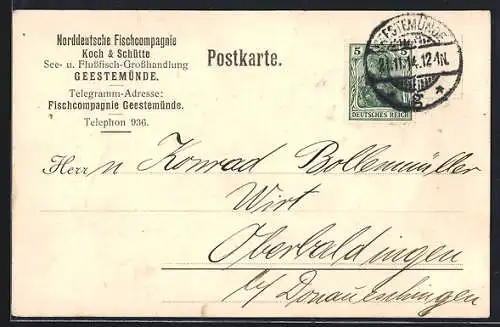 Norddeutsche Fischcompagnie
Koch & Schütte
See- u. Flußfisch-Großhandlung
GEESTEMÜNDE.
Telegramm-Adresse:
Fischcompagnie Geestemünde.
Telephon 936.
Postkarte.
5 5
DEUTSCHES REICH
GEESTEMÜNDE
21.11.14.12-1N.
* g *
Herrn Konrad Bollenmüller
Wirt
Oberbaldingen
b/ Donaueschingen